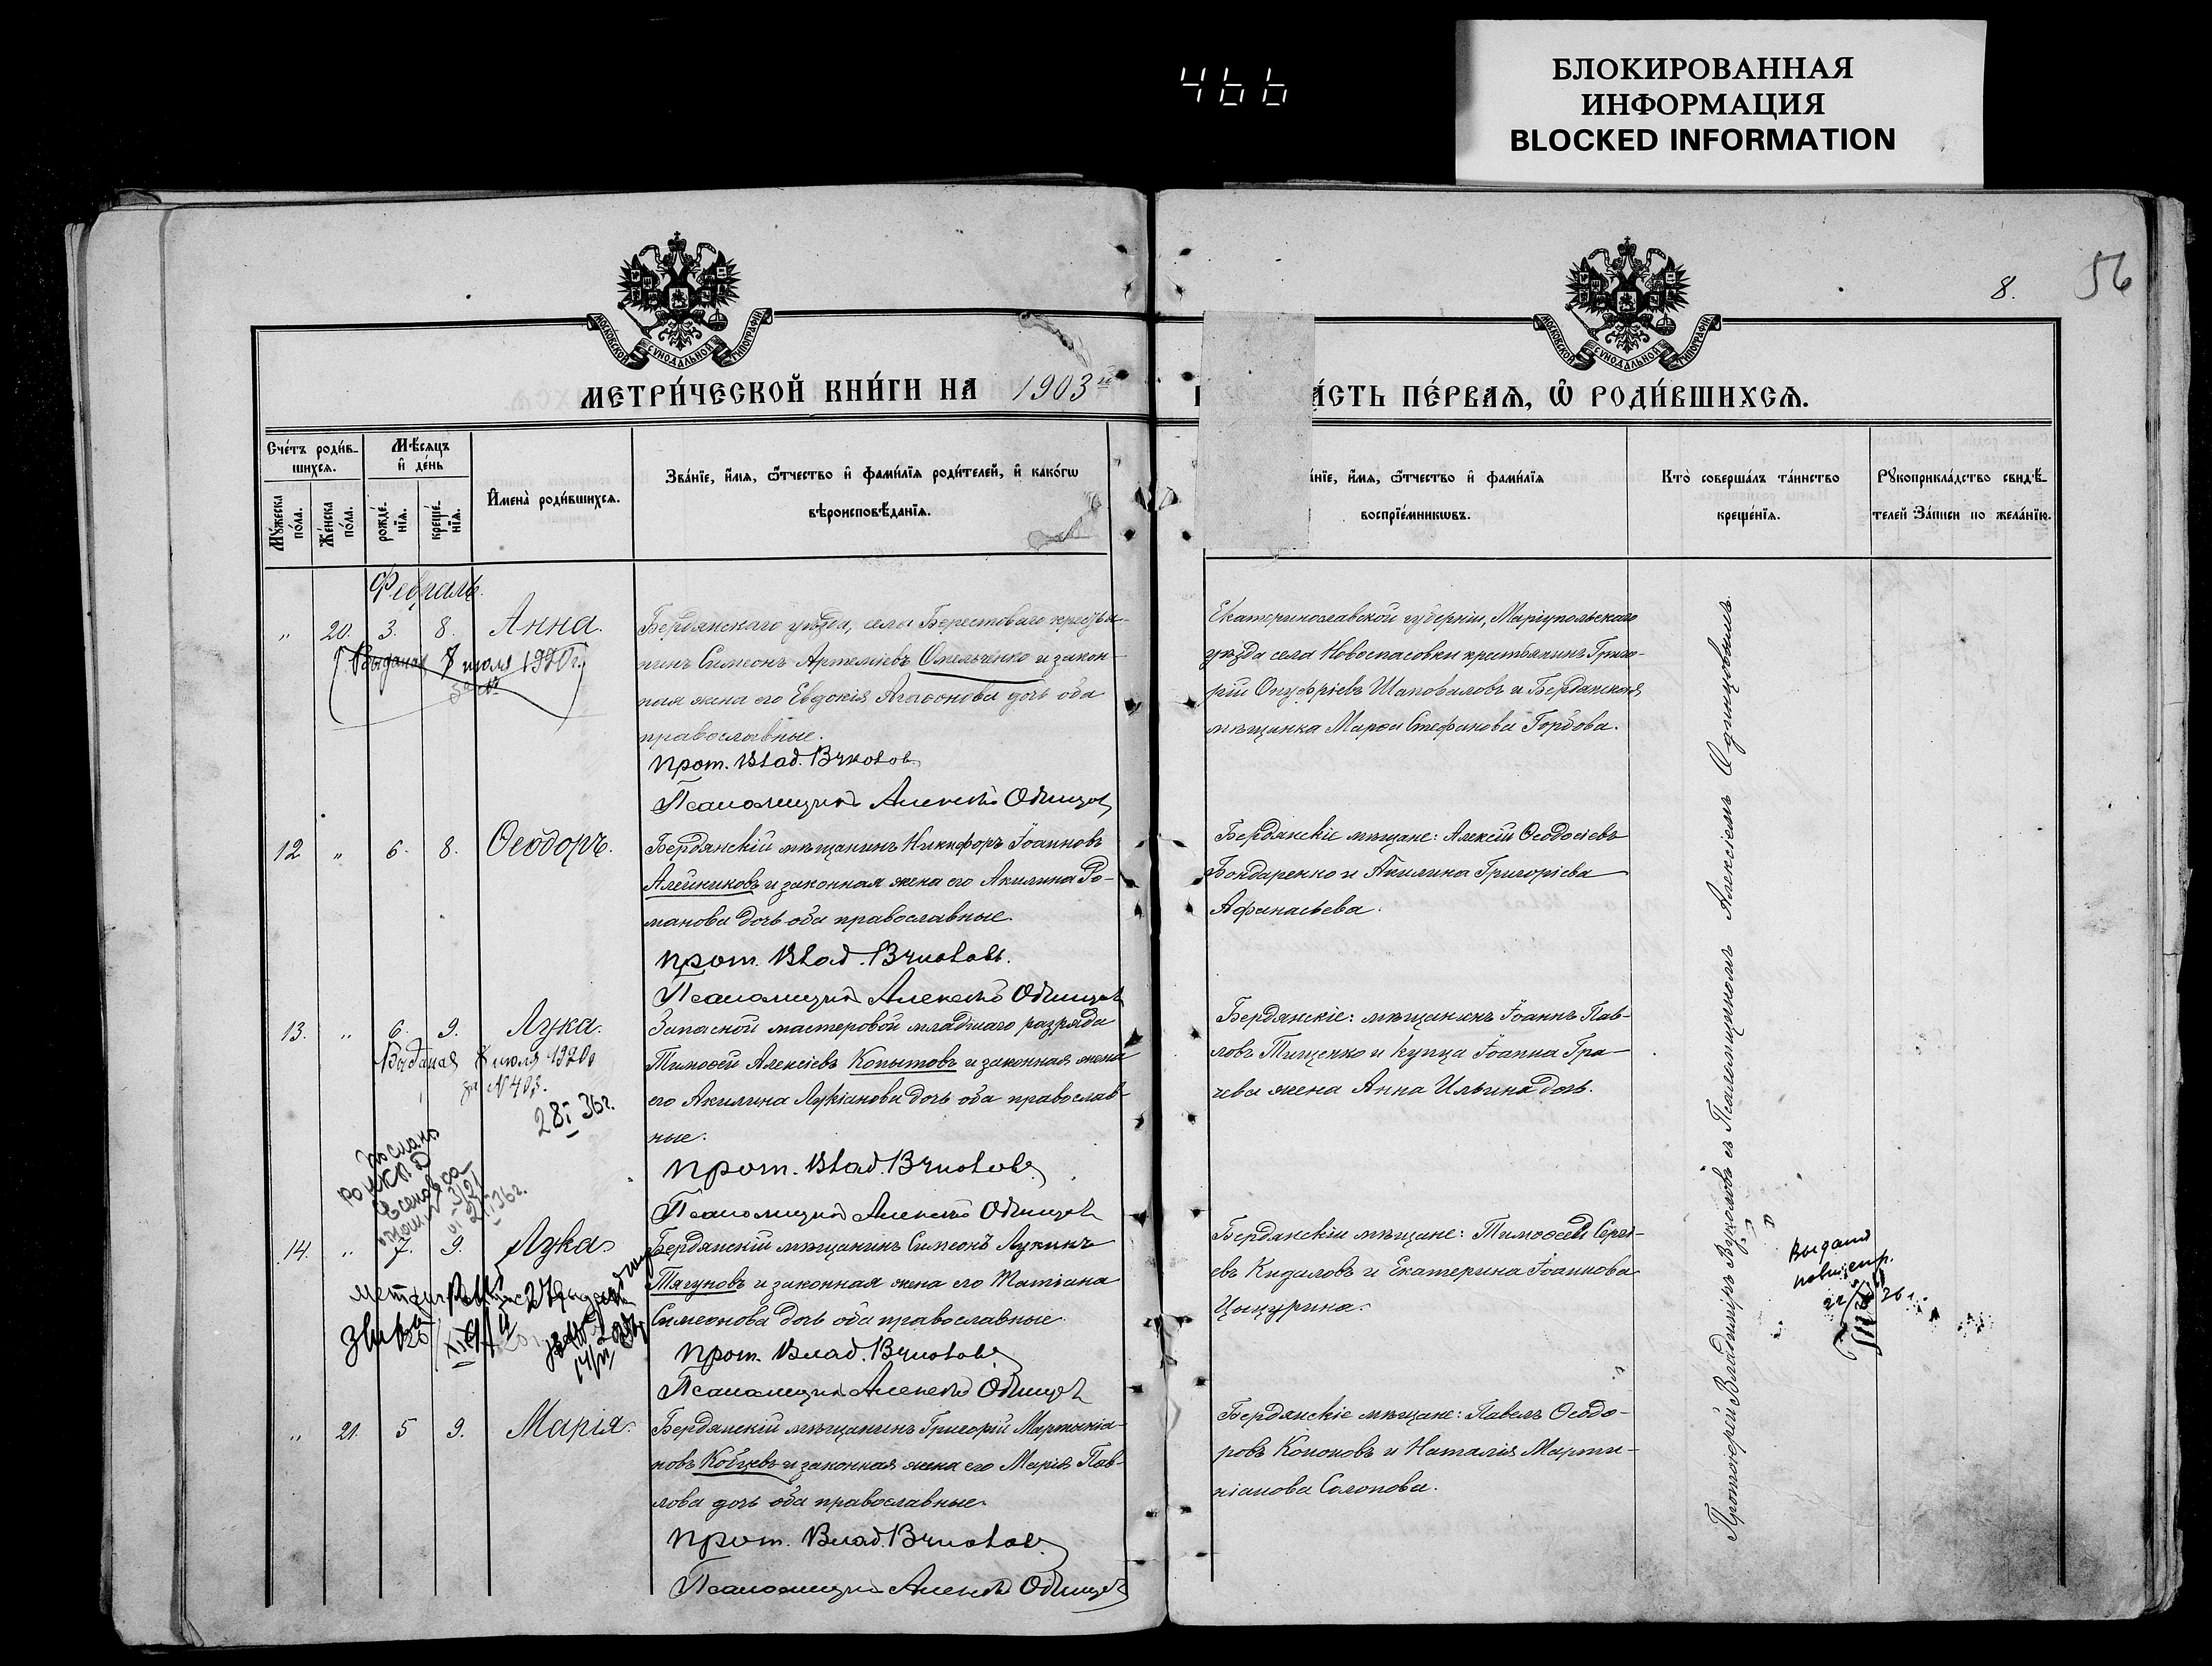 466
БЛОКИРОВАННАЯ
ИНФОРМАЦИЯ
BLOCKED INFORMATION
8.
56
МОСКОВСКОЙ СѴНОДАЛЬНОЙ ТИПОГРАФІИ
МОСКОВСКОЙ СѴНОДАЛЬНОЙ ТИПОГРАФІИ
МЕТРИ́ЧЕСКОЙ КНИ́ГИ НА 1903й
А́СТЬ ПЕ́РВАѦ, Ѡ҆ РОДИ́ВШИХСѦ.
Сче́тъ роди́в-
шихсѧ.
Мꙋ́жеска
по́ла.
Же́нска
по́ла.
Мѣ́сѧцъ
и҆ де́нь
рожде́-
нїѧ.
креще́-
нїѧ.
И҆мена̀ роди́вшихсѧ.
Зва́нїе, и҆́мѧ, ѻ҆́тчество и҆ фами́лїѧ роди́телей, и҆ како́гѡ
вѣроисповѣ́данїѧ.
а́нїе, и҆́мѧ, ѻ҆́тчество и҆ фами́лїѧ
воспрїе́мникѡвъ.
Кто̀ соверша́лъ та́инство
креще́нїѧ.
Рꙋкоприкла́дство свидѣ́-
телей за́писи по жела́нїю.
Февраль.
" 20. 3. 8. Анна.
Бердянскаго уѣзда, села Берестоваго крестья-
нинъ Симеонъ Артеміевъ Омельченко и закон-
ная жена его Евдокія Агаѳонова дочь оба
православные.
Прот. Влад. Вуколовъ
Псаломщикъ Алексѣй Одинцовъ
Екатеринославской губерніи, Маріупольскаго
уѣзда села Новоспасовки крестьянинъ Григо-
рій Онуфріевъ Шаповаловъ и Бердянская
мѣщанка Марѳа Стефанова Горбова.
Выдана 7 июля 1920 г.
за №
12 " 6. 8. Ѳеодоръ.
Бердянскій мѣщанинъ Никифоръ Іоанновъ
Алейниковъ и законная жена его Акилина Ро-
манова дочь оба православные
Прот. Влад. Вуколовъ.
Псаломщикъ Алексѣй Одинцовъ
Бердянскіе мѣщане: Алексій Ѳеодосіевъ
Бондаренко и Акилина Григоріева
Афанасьева.
13. " 6. 9. Лука.
Запасной мастеровой младшаго разряда
Тимоѳей Алексіевъ Копытовъ и законная жена
его Акилина Лукіанова дочь оба православ-
ные.
Прот. Влад. Вуколовъ
Псаломщикъ Алексѣй Одинцовъ
Бердянскіе: мѣщанинъ Іоаннъ Пав-
ловъ Тищенко и купца Іоанна Гра-
чева жена Анна Ильина дочь.
Выданая 8 июля 1920
за № 403.
28 I 36 г.
14. " 7. 9. Лука
Бердянскій мѣщанинъ Симеонъ Лукинъ
Тягуновъ и законная жена его Татіана
Симеонова дочь оба православные
Прот. Влад. Вуколовъ
Псаломщикъ Алексѣй Одинцовъ
Бердянскіи мѣщане: Тимоѳей Серге-
евъ Кидаловъ и Екатерина Іоаннова
Цыцурина.
" 21. 5 9. Марія.
Бердянскій мѣщанинъ Григорій Мартиніа-
новъ Кобцевъ и законная жена его Марія Пав-
лова дочь оба православные.
Прот. Влад. Вуколовъ
Псаломщикъ Алексѣй Одинцовъ
Бердянскіе мѣщане: Павелъ Ѳеодо-
ровъ Кононовъ и Наталія Марти-
ніанова Солопова.
Протоіерей Владиміръ Вуколовъ съ Псаломщикомъ Алексіемъ Одинцовымъ.
Выдано